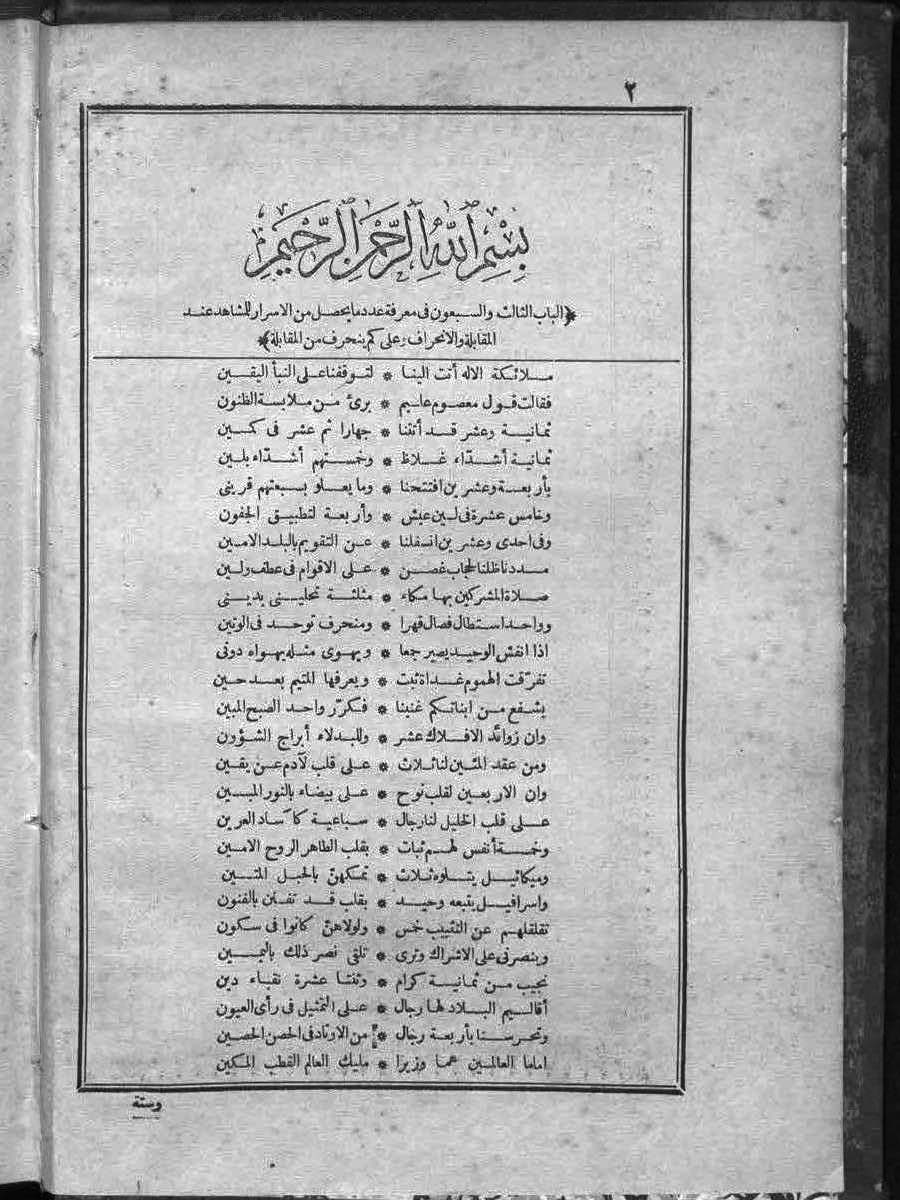 ٢
بِسْمِ اللّٰهِ الرَّحْمٰنِ الرَّحِيمِ
﴿الباب الثالث والسبعون فى معرفة عدد ما يحصل من الاسرار للمشاهد عند
المقابلة والانحراف وعلى كم ينحرف من المقابلة﴾
ملائكة الاله أتت الينا * لتوقفنا على النبأ اليقين
فقالت قول معصوم عليم * برئ من ملابسة الظنون
ثمانية وعشر قد أتتنا * جهارا ثم عشر فى كمين
ثمانية أشدّاء غلاظ * وخمستهم أشدّاء بلين
بأربعة وعشرين افتتحنا * وما يعلو بسبعتهم قرينى
وخامس عشرة فى لين عيش * وأربعة لتطبيق الجفون
وفى احدى وعشرين انسفلنا * عن التقويم بالبلد الامين
مددنا ظلنا لحجاب غصن * على الاقوام فى عطف ولين
صلاة المشركين بها مكاء * مثلثة تحلينى بدينى
وواحد استطال فصال قهرا * ومنحرف توحد فى الوتين
اذا انفش الوحيد يصير جمعا * ويهوى مثله يهواه دونى
تفرّقت الهموم غداة ثبت * ويعرفها المتيم بعد حين
يشفع من ابناتكم غنينا * فكرّر واحد الصبح المبين
وان زوائد الافلاك عشر * وللبدلاء أبراج الشؤون
ومن عقد المئين لنا ثلاث * على قلب لآدم عن يقين
وان الاربعين لقلب نوح * على بيضاء بالنور المبين
على قلب الخليل لنا رجال * سباعية كآساد العرين
وخمسة أنفس لهم ثبات * بقلب الطاهر الروح الامين
وميكائيل يتلوه ثلاث * تمسكهنّ بالحبل المتين
واسرافيل يتبعه وحيد * بقلب قد تفنن بالفنون
تقلقلهم عن التثبيت خمس * ولولاهنّ كانوا فى سكون
وينصرنى على الاشراك وترى * تلقى نصر ذلك باليمين
نجيب من ثمانية كرام * وثنتا عشرة نقباء دين
أقاليم البلاد لها رجال * على التمثيل فى رأى العيون
وتحرسنا بأربعة رجال * من الاوتاد فى الحصن الحصين
اماما العالمين هما وزيرا * مليك العالم القطب المكين
وستة